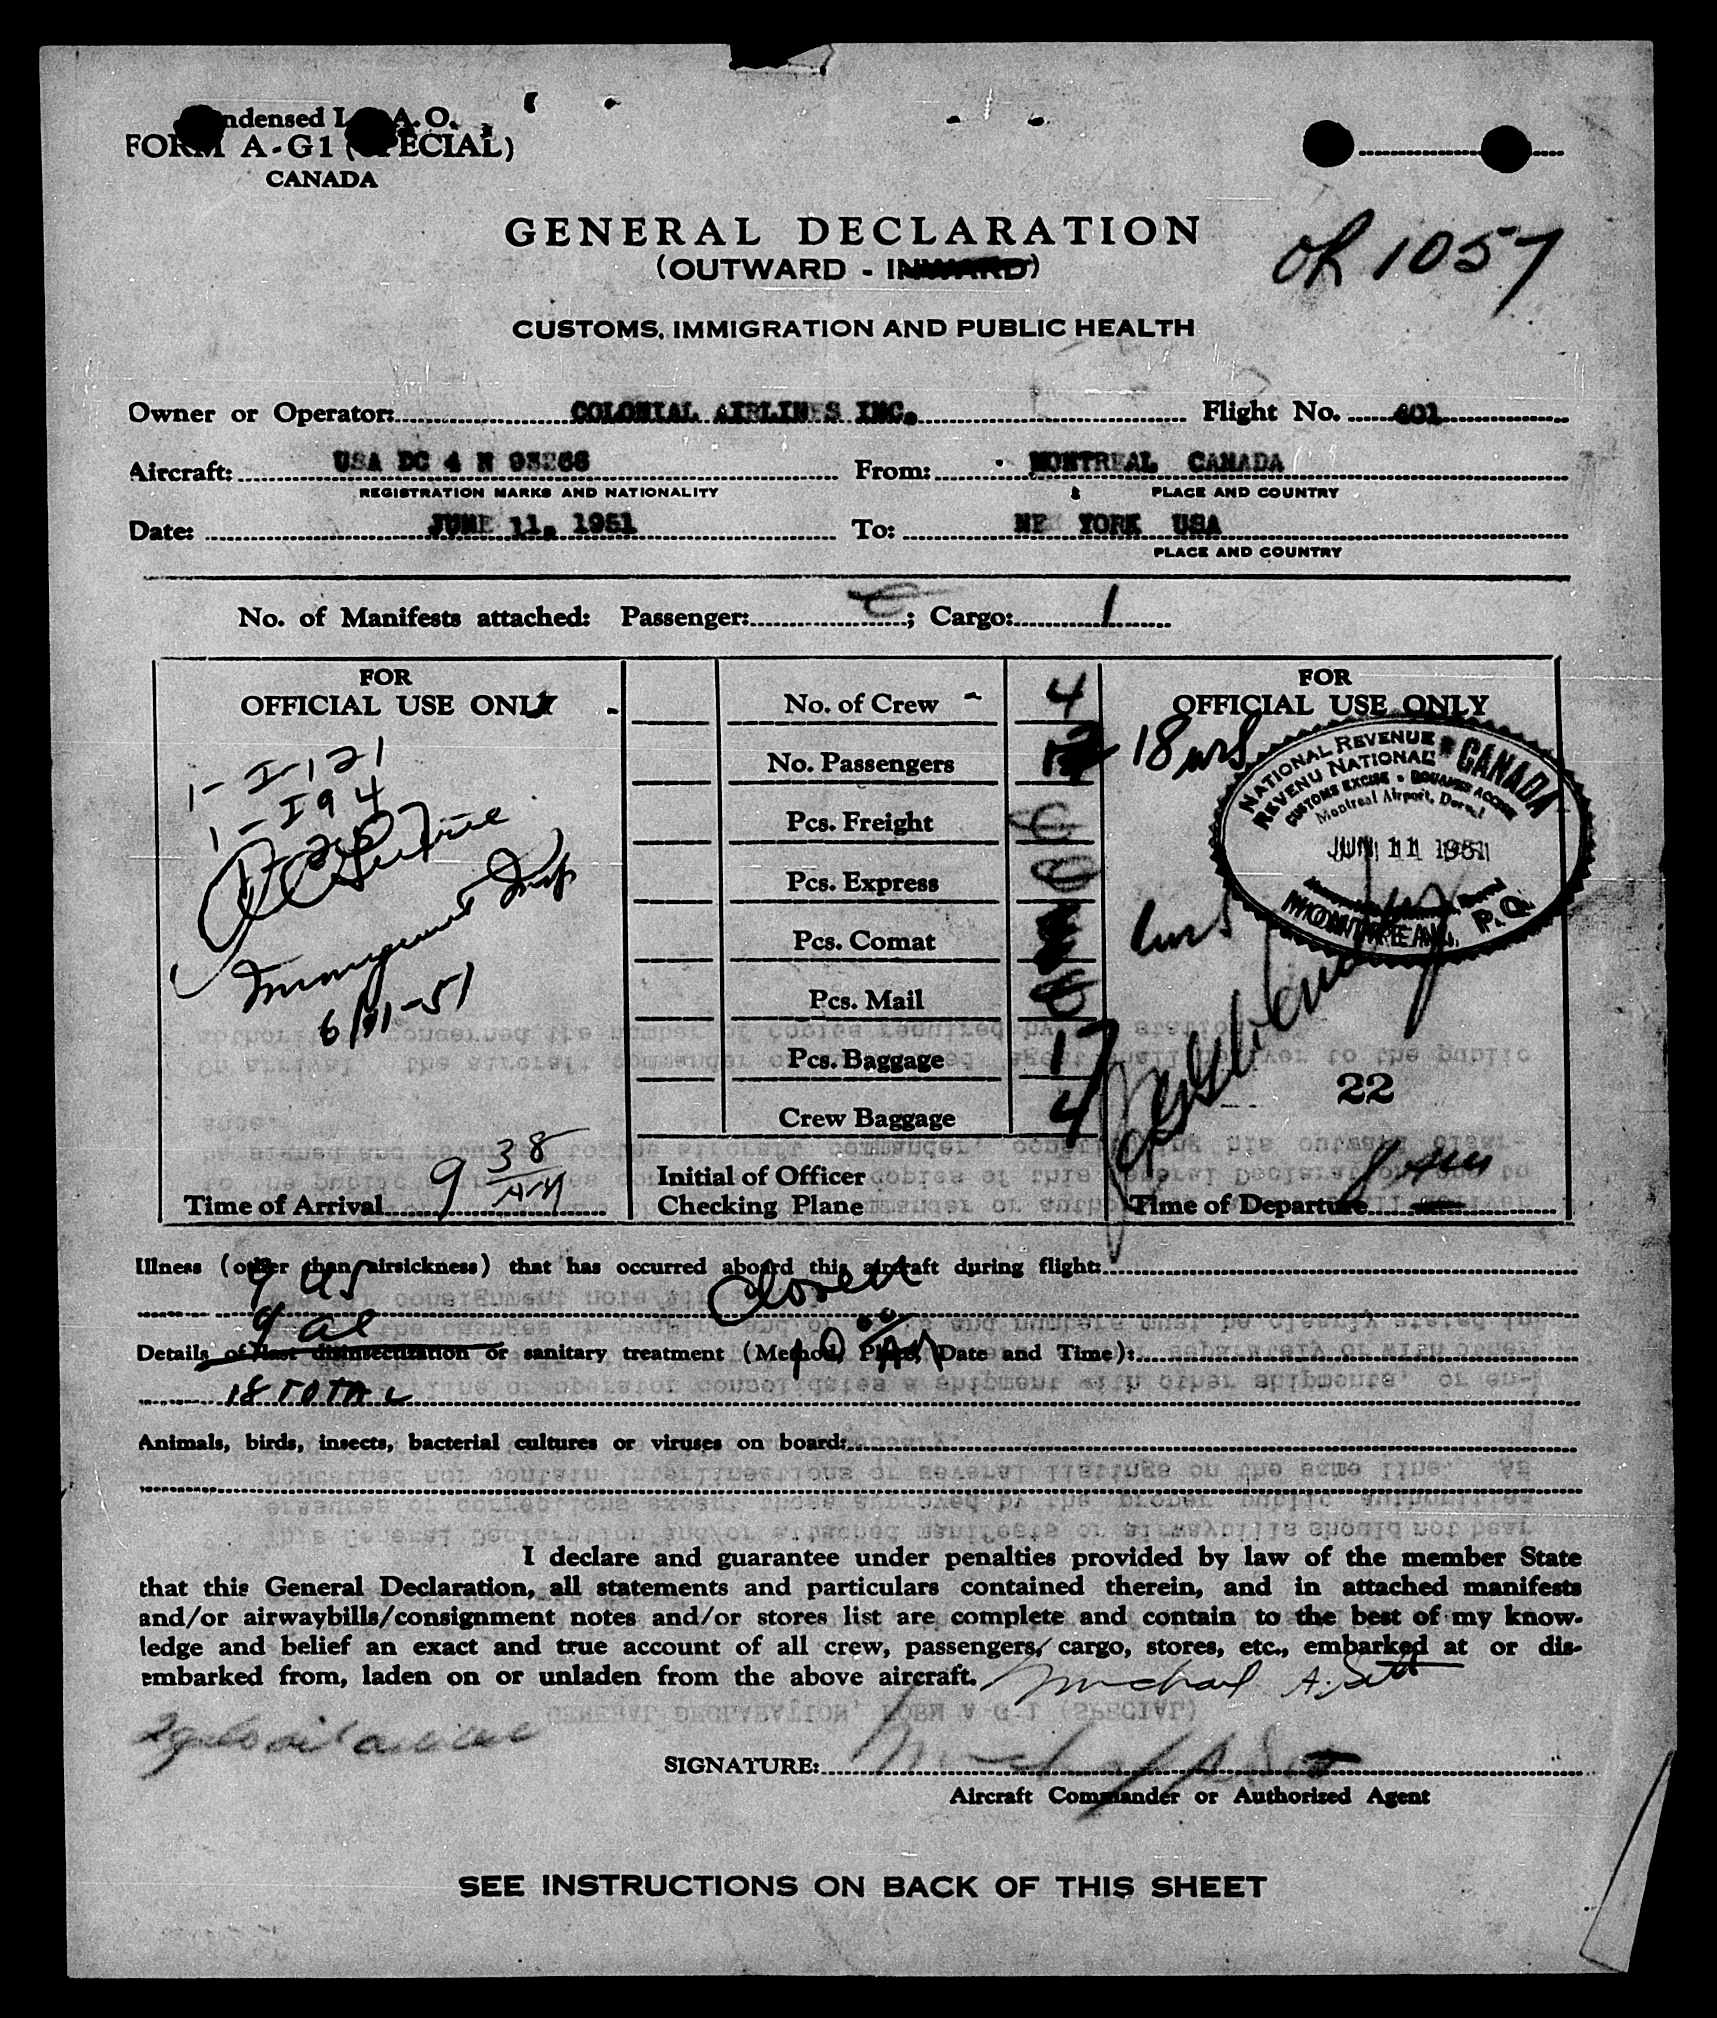 Condensed I.C.A.O.
FORM A-G1 (SPECIAL)
CANADA
GENERAL DECLARATION
(OUTWARD - INWARD)
1057
CUSTOMS, IMMIGRATION AND PUBLIC HEALTH
Owner or Operator: COLONIAL AIRLINES INC. Flight No. 401
Aircraft: USA DC 4 N 93266 From: MONTREAL CANADA
REGISTRATION MARKS AND NATIONALITY PLACE AND COUNTRY
Date: JUNE 11, 1951 To: NEW YORK USA
PLACE AND COUNTRY
No. of Manifests attached: Passenger: ; Cargo: 1
FOR
OFFICIAL USE ONLY
1-I-121
1-I94
Immigrant Insp
6/11-51
Time of Arrival 9 38 AM
No. of Crew - 4
No. Passengers
Pcs. Freight 0
Pcs. Express 0
Pcs. Comat
Pcs. Mail
Pcs. Baggage 17
Crew Baggage 4
Initial of Officer
Checking Plane
FOR
OFFICIAL USE ONLY
18
NATIONAL REVENUE CANADA
REVENU NATIONAL
CUSTOMS EXCISE DOUANES ACCISE
Montreal Airport, Dorval
JUN 11 1951
MONTREAL, P.Q.
22
Time of Departure
Illness (other than airsickness) that has occurred aboard this aircraft during flight:
9 US
9 al
Details of last disinsectization or sanitary treatment (Method, Place, Date and Time):
18 TOTAL
Animals, birds, insects, bacterial cultures or viruses on board:
I declare and guarantee under penalties provided by law of the member State
that this General Declaration, all statements and particulars contained therein, and in attached manifests
and/or airwaybills/consignment notes and/or stores list are complete and contain to the best of my know-
ledge and belief an exact and true account of all crew, passengers, cargo, stores, etc., embarked at or dis-
embarked from, laden on or unladen from the above aircraft.
Michael A.
SIGNATURE:
Aircraft Commander or Authorized Agent
SEE INSTRUCTIONS ON BACK OF THIS SHEET